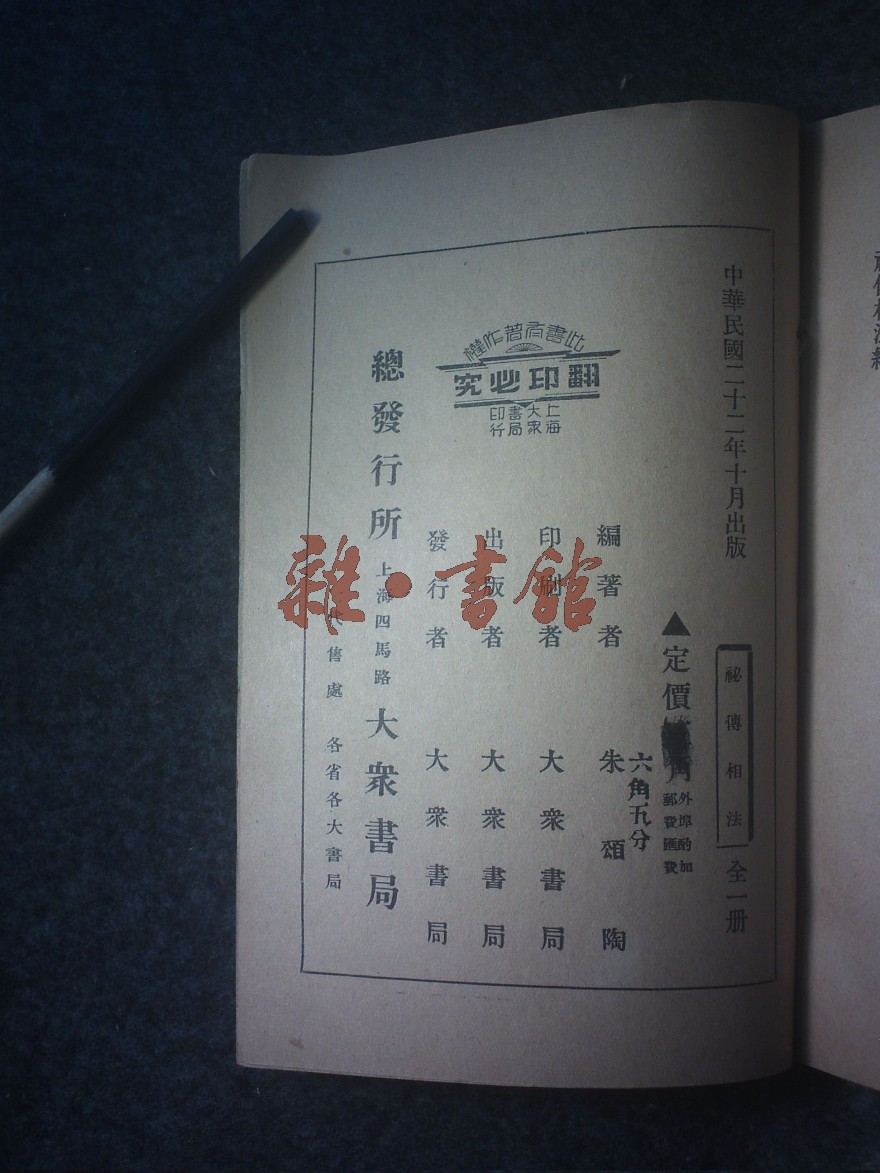 中華民國二十二年十月出版
祕傳相法
全一册
▲定價
角
外埠酌加
郵費匯費
六角五分
編著者 朱頌陶
印刷者 大衆書局
出版者 大衆書局
發行者 大衆書局
此書有著作權
翻印必究
上海
大衆
書局
印行
總發行所 上海四馬路 大衆書局
售處 各省各大書局
雜·書館